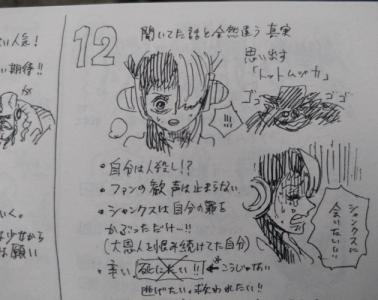 い人気!
い期待!!
いく。
は少女から
は願い
12
聞いてた話と全然違う 真実
思い出す
「トットムジカ」
ゴゴ
ゴゴ
!!!
・自分は人殺し!?
・ファンの歓声は止まらない
・シャンクスは自分の罪を
かぶっただけ…!!
(大恩人を恨み続けてた自分)
・辛い 死にたい!! ←こうじゃない
逃げたい。救われたい!!
シャンクスに
会いたい!!